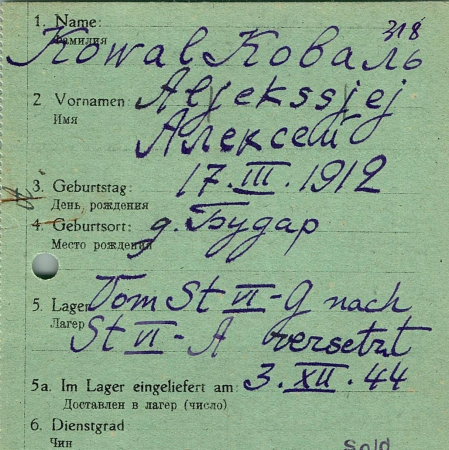 318
1. Name: Kowal Коваль
Фамилия
2 Vornamen: Aljekssjej
Имя Алексей
3. Geburtstag: 17. III. 1912
День рождения
4. Geburtsort: д. Будар
Место рождения
5. Lager Vom St VI-G nach
Лагер St VI-A versetzt
5a. Im Lager eingeliefert am: 3. XII. 44
Доставлен в лагер (число)
6. Dienstgrad
Чин Sold